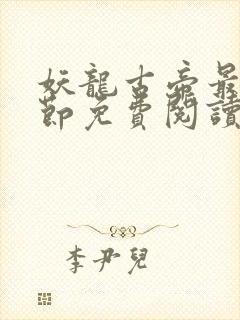 妖龍古帝最
節免費閱讀
李尹兒